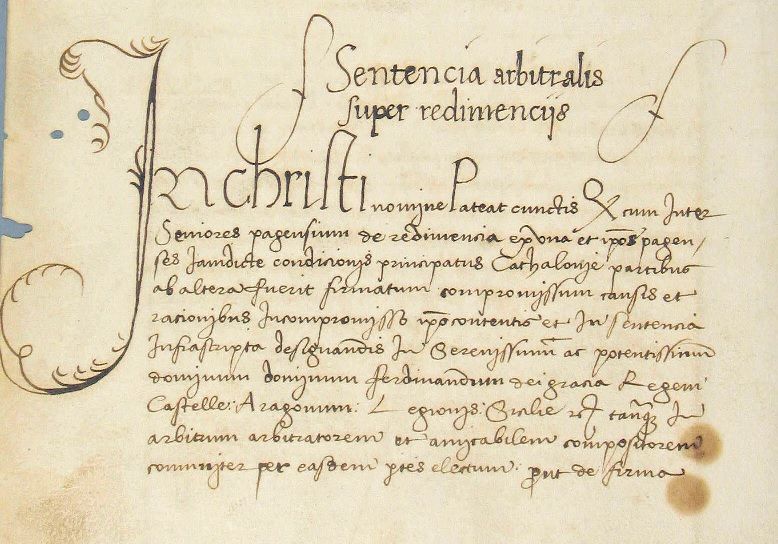 Sentencia arbitralis
super redimencijs
In christi nomine Pateat cunctis Qx cum Inter
Seniores pagensium de redimencia ex vna et ip̄os pagen-
ses Iamdicte condicionis principatus Cathalonie partibus
ab altera fuerit firmatum compromissum causis et
racionibus Incompromisso ip̄o contentis et In sentencia
Infrascripta designandis In Serenissimū ac potentissimū
dominum dominum ferdinandum dei gracia Regem
Castelle: Aragonum: Legionis: Sicilie rc̄ tanq̄ In
arbitrum arbitratorem et amicabilem compositorem
comuniter per easdem ptes electum: prout de firma